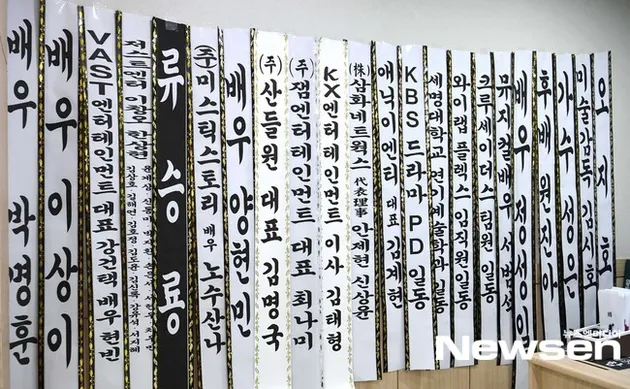 배우 박병훈
배우 이상이
VAST엔터테인먼트 대표 강건택 배우 현빈
저스트엔터 이창호 한상현
류승룡
(주)미스틱스토리 배우 노수산나
배우 양현민
(주)산들원 대표 김명국
(주)잼엔터테인먼트 대표 최나미
KX엔터테인먼트 이사 김태형
(株)삼화네트웍스 代表理事 안제현 신상윤
애닉이엔티 대표 김계현
KBS 드라마 PD 일동
세명대학교 연기예술학과 일동
와이랩 플렉스 임직원일동
크루세이더스팀원 일동
뮤지컬배우 서범석
배우 정성일
후배 원진아
가수 성은
미술감독 김시호
오지호
뉴스엔미디어
Newsen